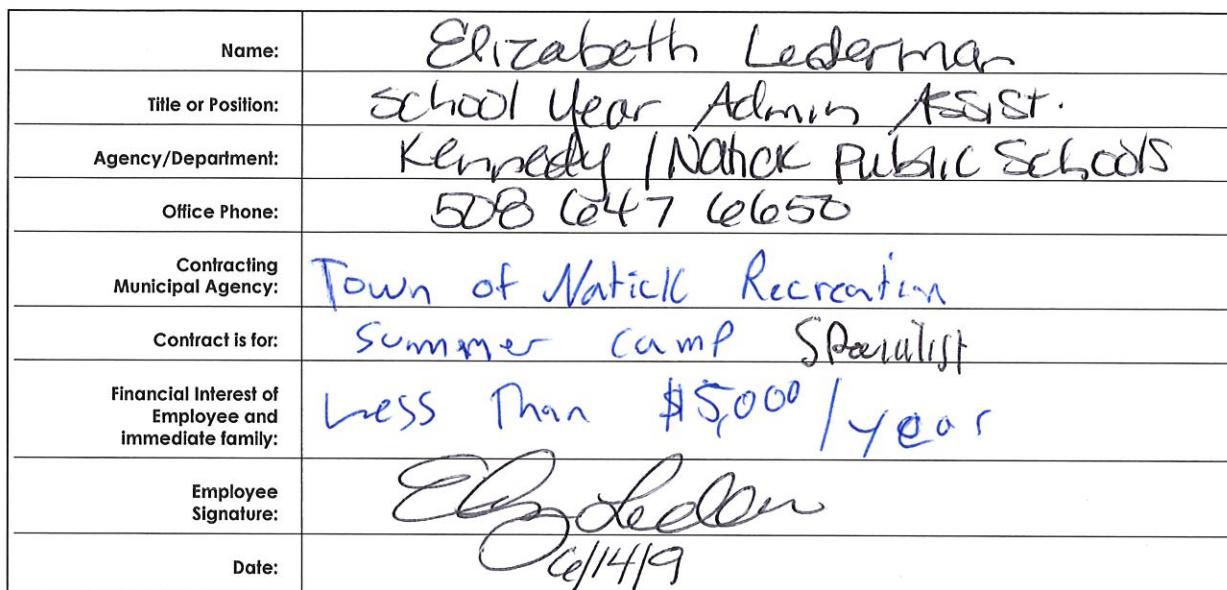 Name: Elizabeth Lederman
Title or Position: School Year Admin Assist.
Agency/Department: Kennedy / Natick Public Schools
Office Phone: 508 647 6650
Contracting
Municipal Agency: Town of Natick Recreation
Contract is for: Summer camp Specialist
Financial Interest of
Employee and
immediate family: Less Than $5,000 / year
Employee
Signature:
Date: 6/14/9